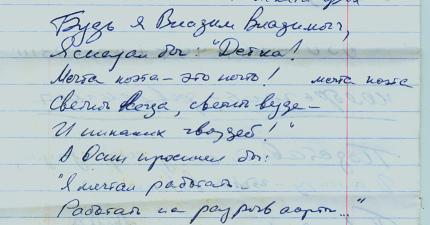 Будь я Владим Владимыч,
Я сказал бы: "Детка!
Мечта поэта – это нечто! мечта поэта
Светить всегда, светить везде –
И никаких гвоздей!"
А Осип произнёс бы:
"Я мечтал работать...
Работать на разрыв аорты..."